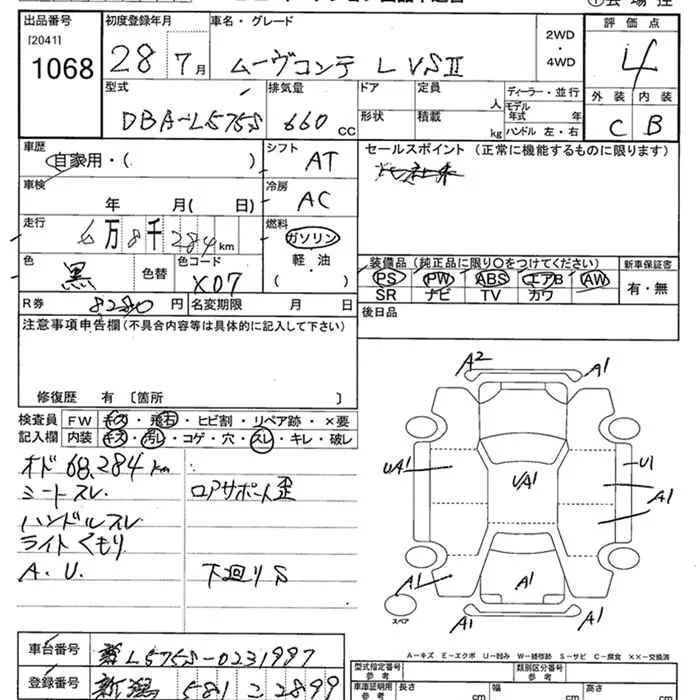 出品番号 初度登録年月 車名・グレード 評価点
[2041]
1068 28 7月 ムーヴコンテ L VSⅡ 2WD・4WD 4
型式 排気量 ドア 定員 人 ディーラー・並行 外装 内装
DBA-L575S 660 CC 形状 積載 kg モデル年式 年 C B
ハンドル 左・右
車歴 シフト セールスポイント (正常に機能するものに限ります)
自家用・( ) AT
車検 冷房
年 月( 日) AC
走行 燃料
6万8千284km ガソリン
色 色替 色コード 軽油 装備品 (純正品に限り○をつけてください) 新車保証書
黒 X07 ( ) PS PW ABS エアB AW 有・無
SR ナビ TV カワ
R券 8280円 名変期限 月 日 後日品
注意事項申告欄(不具合内容等は具体的に記入して下さい)
修復歴 有 〔箇所 〕
検査員 FW キズ・飛石・ヒビ割・リペア跡・×要
記入欄 内装 キズ・汚レ・コゲ・穴・スレ・キレ・破レ
オド68,284km
シートスレ ロアサポート歪
ハンドルスレ
ライトくもり
A.U. 下廻りS
A2 A1
UA1 UA1 U1
A1
A1 A1
スペア A1 A1
A-キズ E-エクボ U-凹み W-補修跡 S-サビ C-腐食 ××-交換済
車台番号 L575S-0231997
登録番号 新潟 581 こ 2899
型式指定番号 参考 類別区分番号 参考
車庫証明用 参考 長さ cm 幅 cm 高さ cm